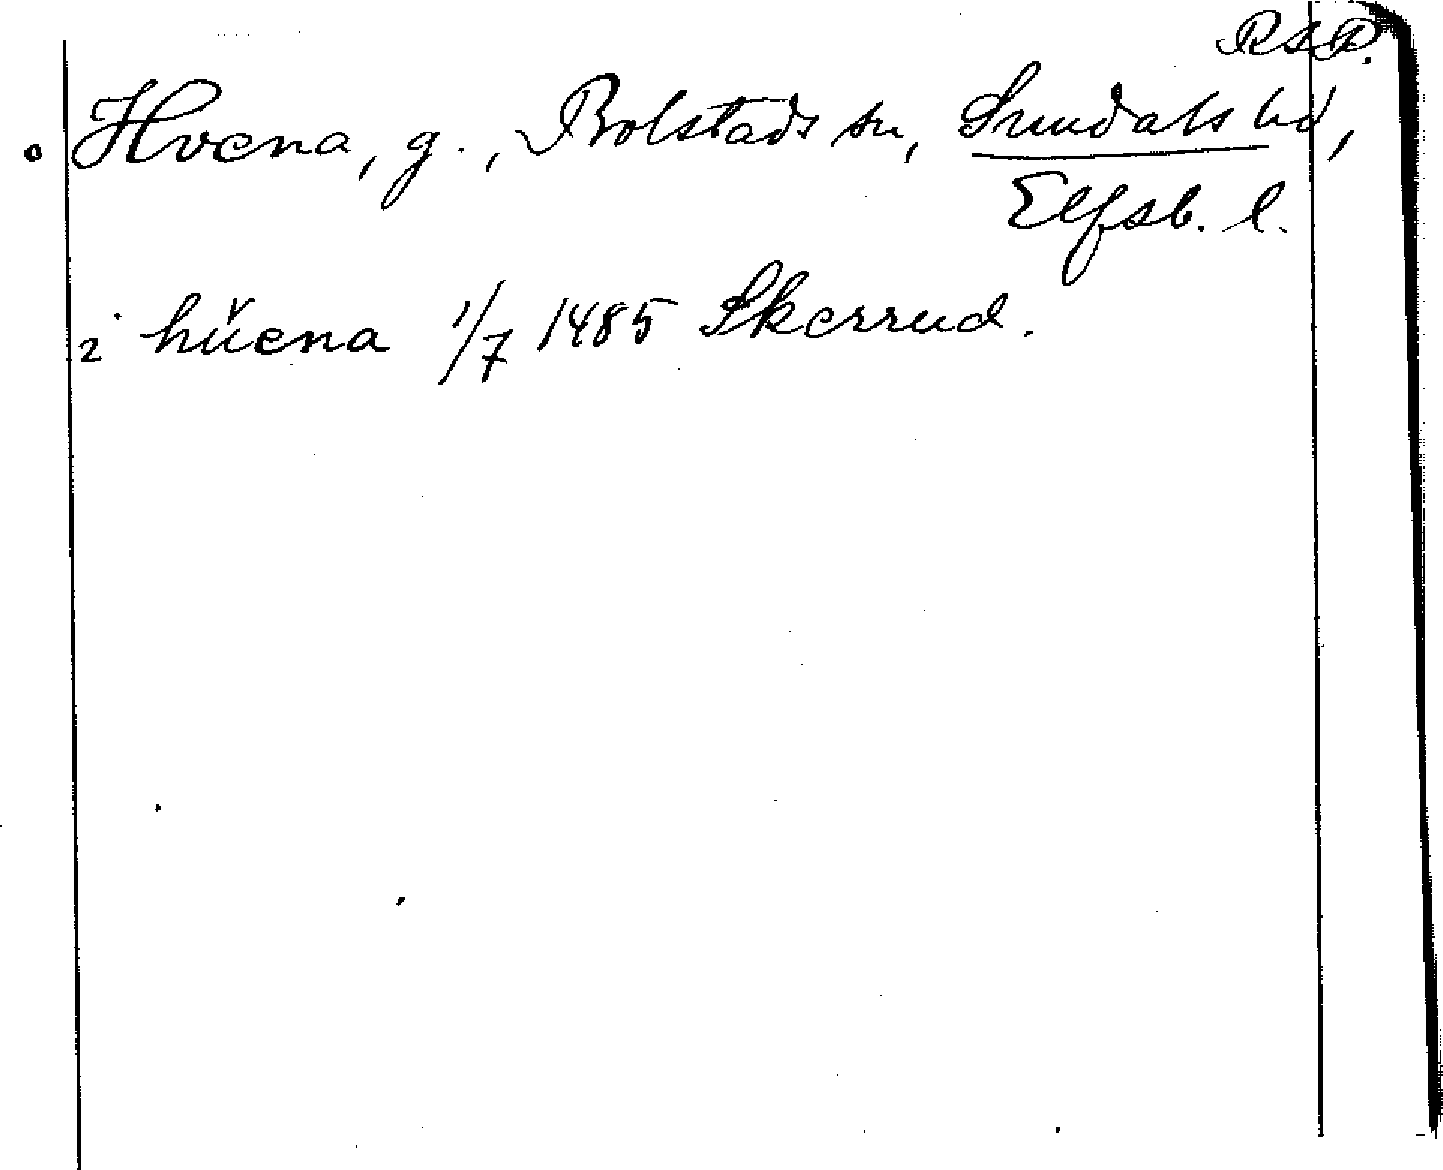 RSP.
Hvena, g., Bolstads sn, Sundals hd,
Elfsb. l.
i hŭena 1/7 1485 Skerrud.